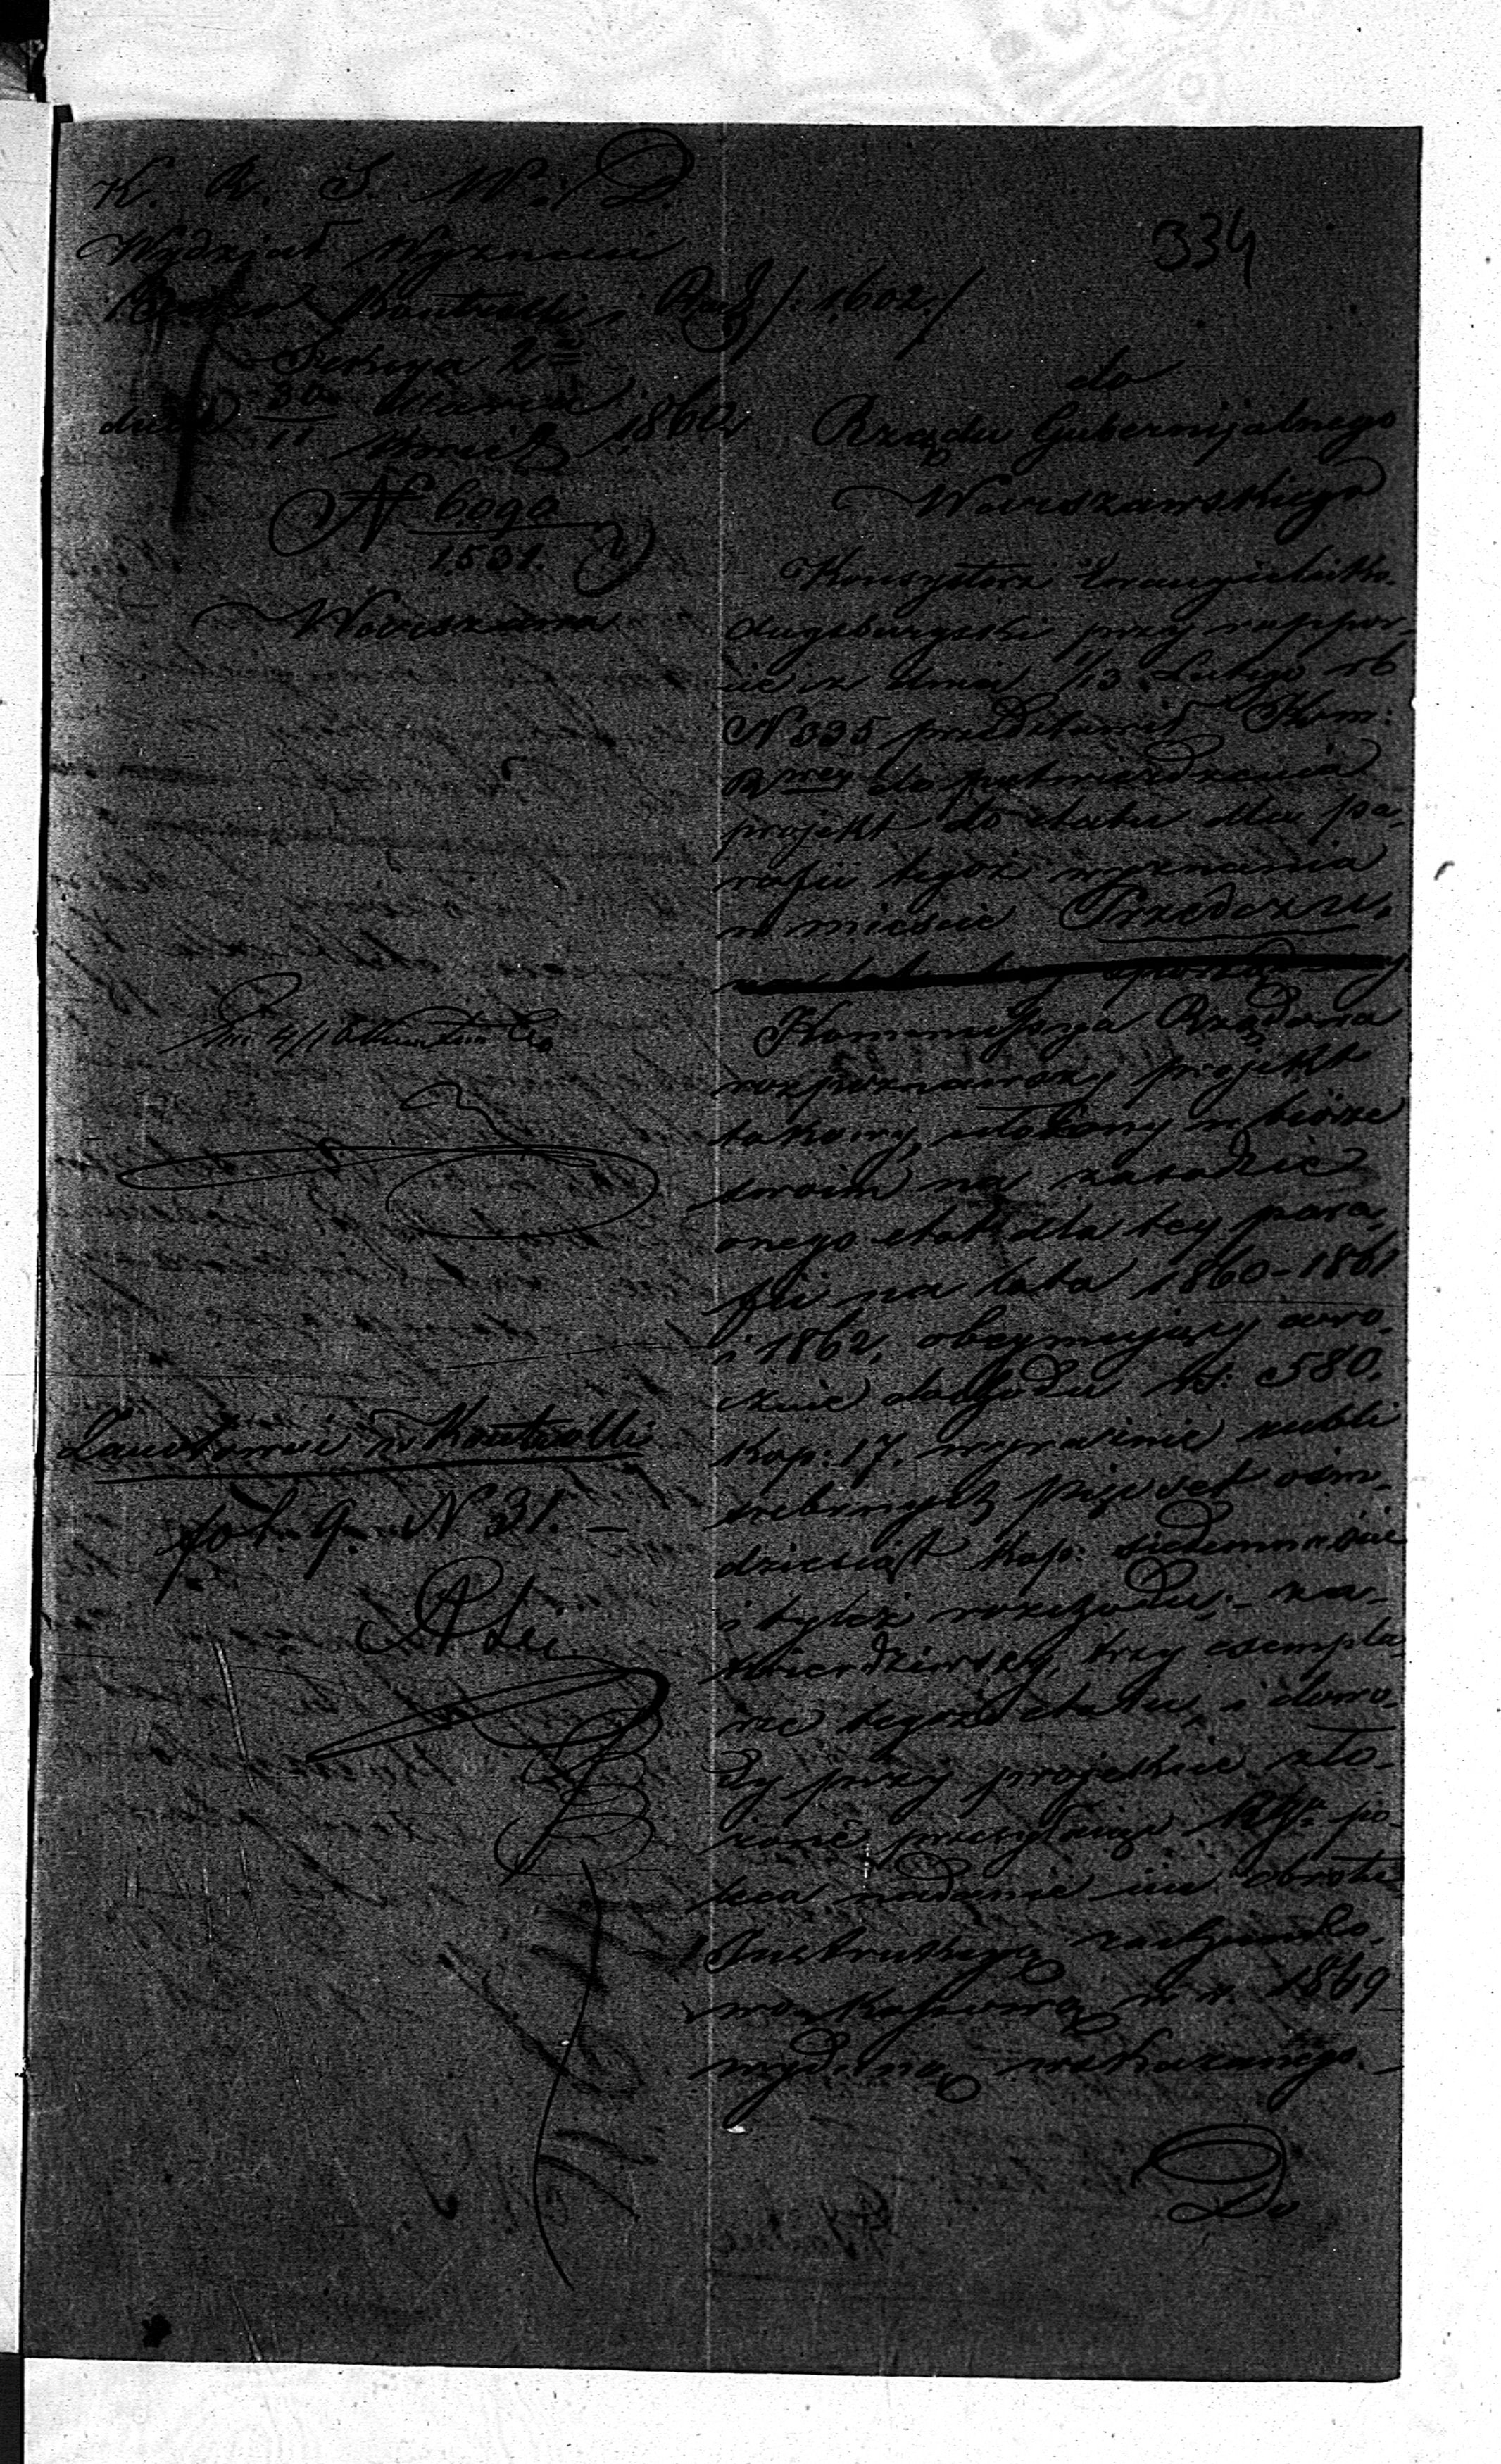 334
K. R. S. W. i D.
Wydział Wyznań
Kontrolli i /:1602:/
Sekcya 2ª
dnia 30 Marca
11 1860
N 6090
1531.
Warszawa
do
Rządu Gubernijalnego
Warszawskiego
Konsystorz Ewangielicko
Augsburgski przy rappor-
cie z dnia 1/13 Lutego rb
N 325 przedstawił Kom:
Rwey do potwierdzenia
projekt do etatu dla pa-
rafii tegoż wyznania
w mieście Przedczu.
Kommissya Rządowa
rozpoznawszy projekt
takowy, ułożony w biórze
swoim na zasadzie
onego etat dla tey para-
fii na lata 1860-1861
i 1862, obeymujący coro-
cznie dochodu rs: 580.
kop: 17. wyraźnie rubli
srebrnych pięćset ośm-
dziesiąt kop: siedemnaście
i tyleż rozchodu; - za-
twierdziwszy, trzy exempla-
rze tegoż etatu, i dowo-
dy przy projekcie zło-
żone przesyłając po-
leca nadanie im obrotu
Instrukcyą rachunko-
wo-kassową w r. 1849
wydaną wskazanego.
Do
Zanotowano w Kontrolli
fol. 9. N 31. –